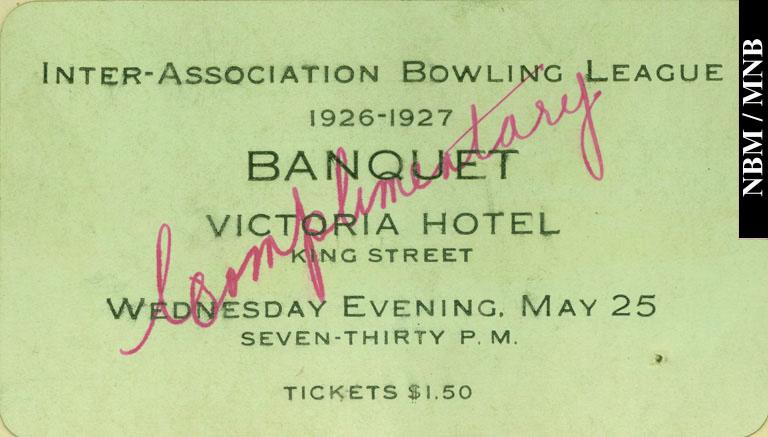 INTER-ASSOCIATION BOWLING LEAGUE
1926-1927
BANQUET
VICTORIA HOTEL
KING STREET
WEDNESDAY EVENING, MAY 25
SEVEN-THIRTY P. M.
TICKETS $1.50
Complimentary
NBM / MNB